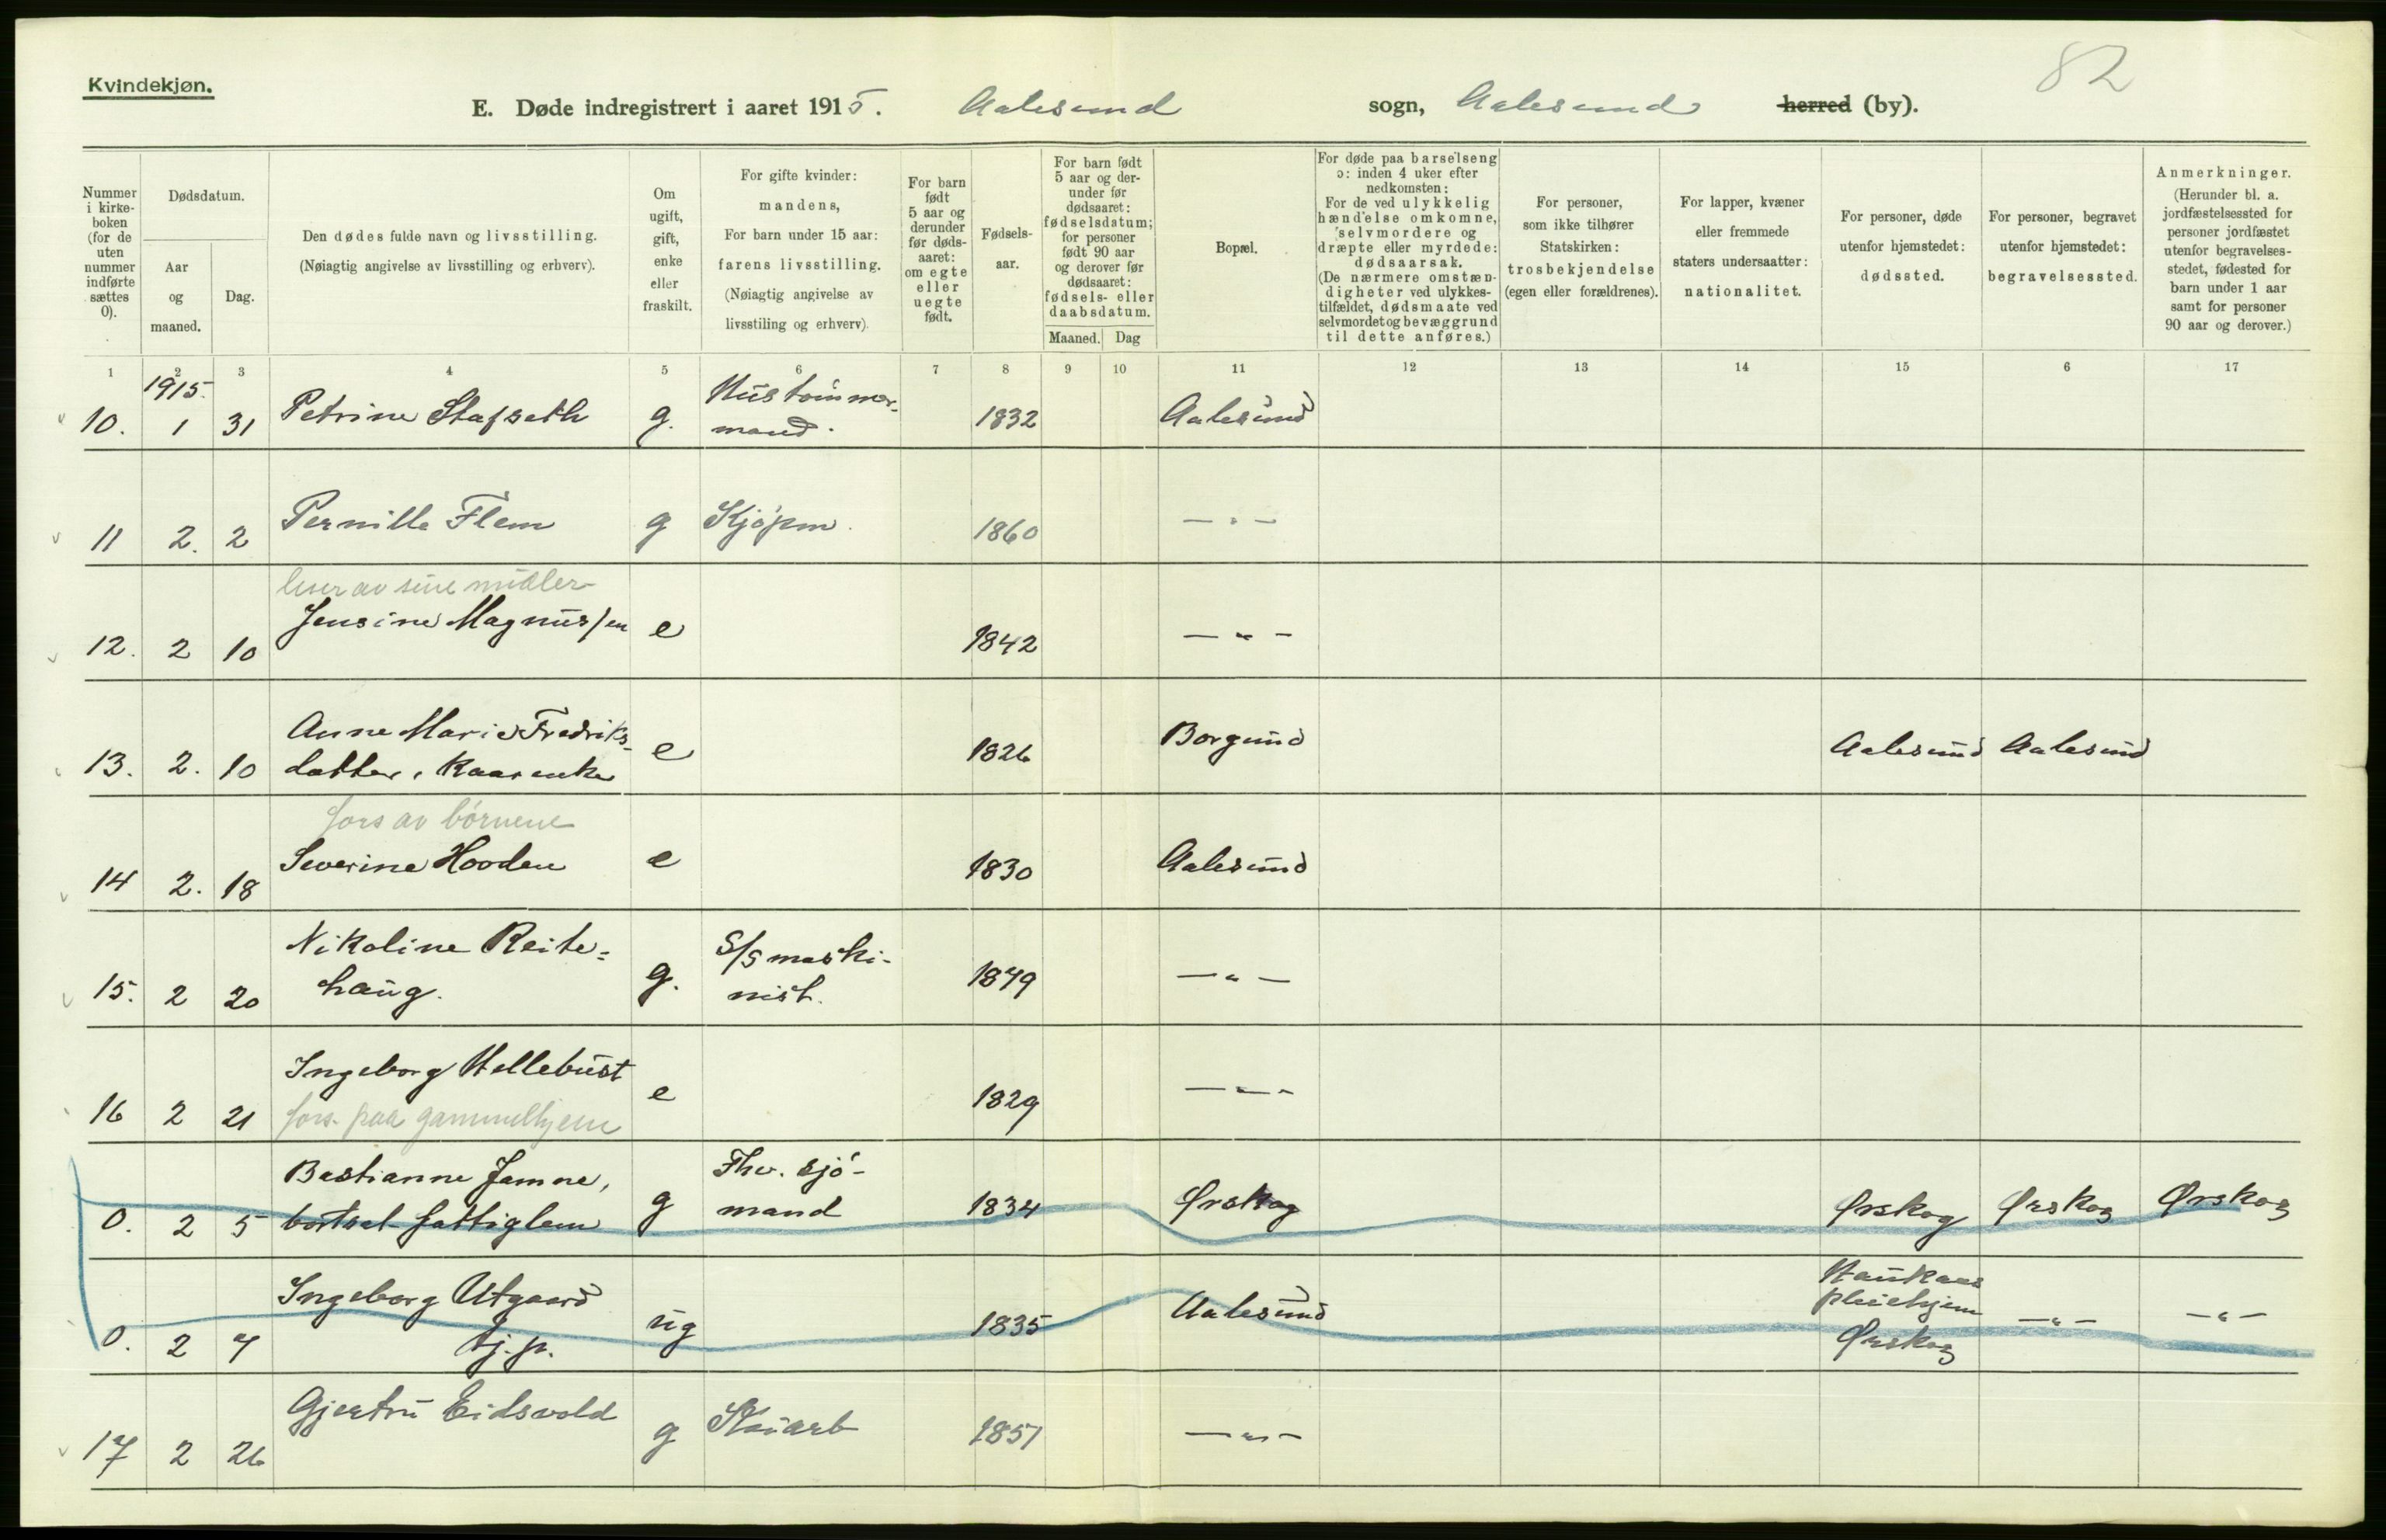 82
Kvindekjøn.
E. Døde indregistrert i aaret 1915. Aalesund sogn, Aalesund herred (by).
Nummer i kirke-boken (for de uten nummer indførte sættes 0).
Dødsdatum.
Aar og maaned.
Dag.
Den dødes fulde navn og livsstilling.
(Nøiagtig angivelse av livsstilling og erhverv).
Om ugift, gift, enke eller fraskilt.
For gifte kvinder: mandens,
For barn under 15 aar: farens livsstilling.
(Nøiagtig angivelse av livsstiling og erhverv).
For barn født 5 aar og derunder før døds-aaret: om egte eller uegte født.
Fødsels-aar.
For barn født 5 aar og der-under før dødsaaret: fødselsdatum; for personer født 90 aar og derover før dødsaaret: fødsels- eller daabsdatum.
Maaned. Dag
Bopæl.
For døde paa barselseng ɔ: inden 4 uker efter nedkomsten:
For de ved ulykkelig hændelse omkomne, selvmordere og dræpte eller myrdede: dødsaarsak.
(De nærmere omstæn-digheter ved ulykkes-tilfældet, dødsmaate ved selvmordet og bevæggrund til dette anføres.)
For personer, som ikke tilhører Statskirken: trosbekjendelse (egen eller forældrenes).
For lapper, kvæner eller fremmede staters undersaatter: nationalitet.
For personer, døde utenfor hjemstedet: dødssted.
For personer, begravet utenfor hjemstedet: begravelsessted.
Anmerkninger.
(Herunder bl. a. jordfæstelsessted for personer jordfæstet utenfor begravelses-stedet, fødested for barn under 1 aar samt for personer 90 aar og derover.)
1 2 3 4 5 6 7 8 9 10 11 12 13 14 15 6 17
1915.
10. 1 31 Petrine Stafseth g. Hustømmer-
mand. 1832 Aalesund
11 2. 2 Pernille Flem g Kjøpm. 1860 — " —
lever av sine midler
12. 2 10 Jensine Magnussen e 1842 — " —
13. 2. 10 Anne Marie Fredriks-
datter, Kaarenke e 1826 Borgund Aalesund Aalesund
fors av børnene
14 2. 18 Severine Hovden e 1830 Aalesund
15. 2 20 Nikoline Reite=
haug. g. S/S maski-
nist. 1849 — " —
16 2 21 Ingeborg Hellebust e 1829 — " —
fors. paa gammelhjem
0. 2 5 Bastianne Jamne,
bortsat fattiglem g Fhv. sjø-
mand 1834 Ørskog Ørskog Ørskog Ørskog
0. 2 7 Ingeborg Utgaard
tj. p. ug 1835 Aalesund Haukaas
pleiehjem
Ørskog — " — — " —
17 2 26 Gjertru Eidsvold g Kaiarb 1851 — " —